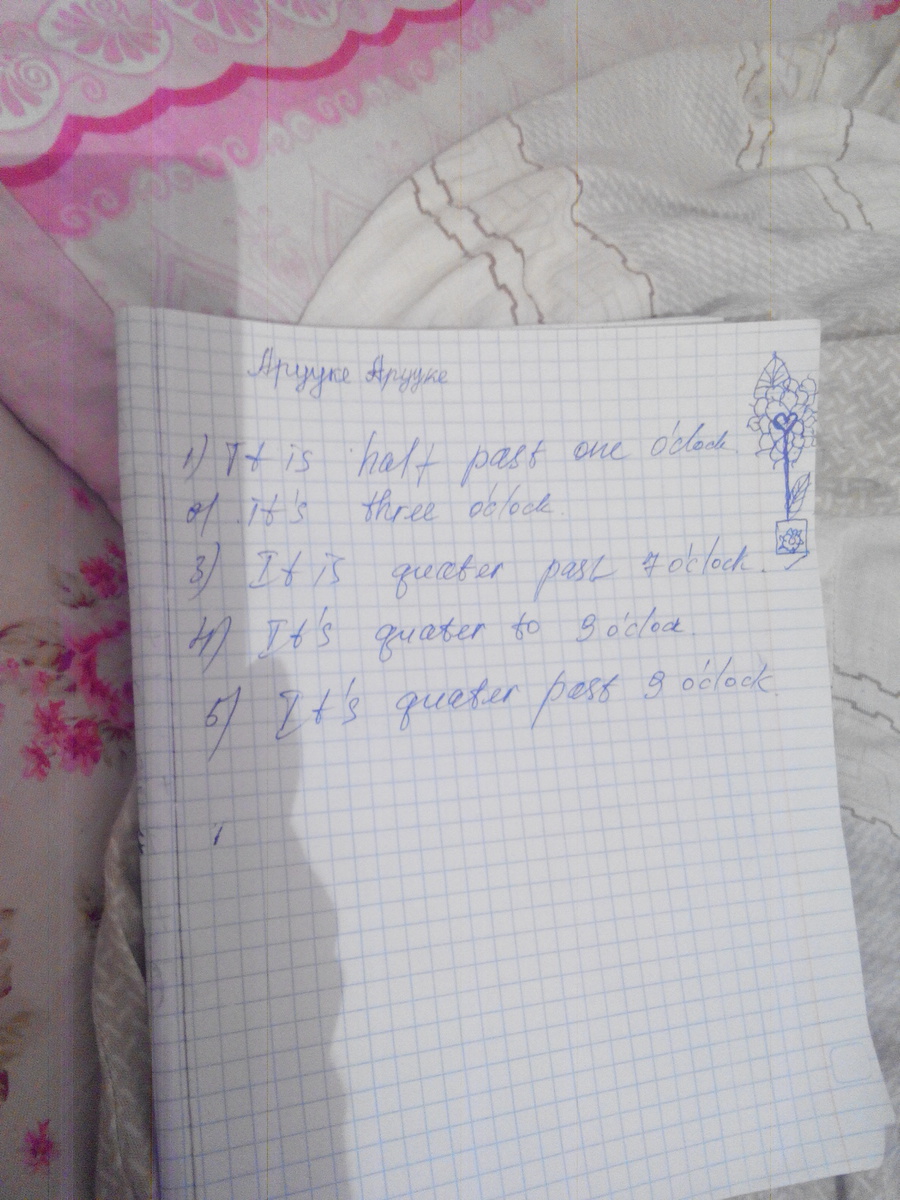 Арууке Арууке
1) It is half past one o'clock.
2) It's three o'clock.
3) It is quater past 7 o'clock.
4) It's quater to 9 o'cloc.
5) It's quater past 9 o'clock.